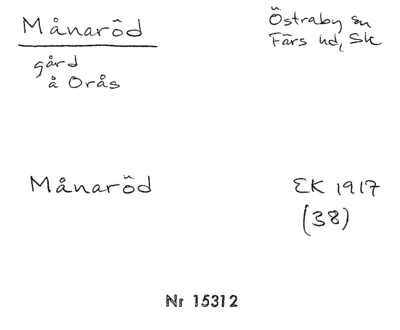 Månaröd
Östraby sn
Färs hd, Sk
gård
å Orås
Månaröd
EK 1917
(38)
Nr 15312